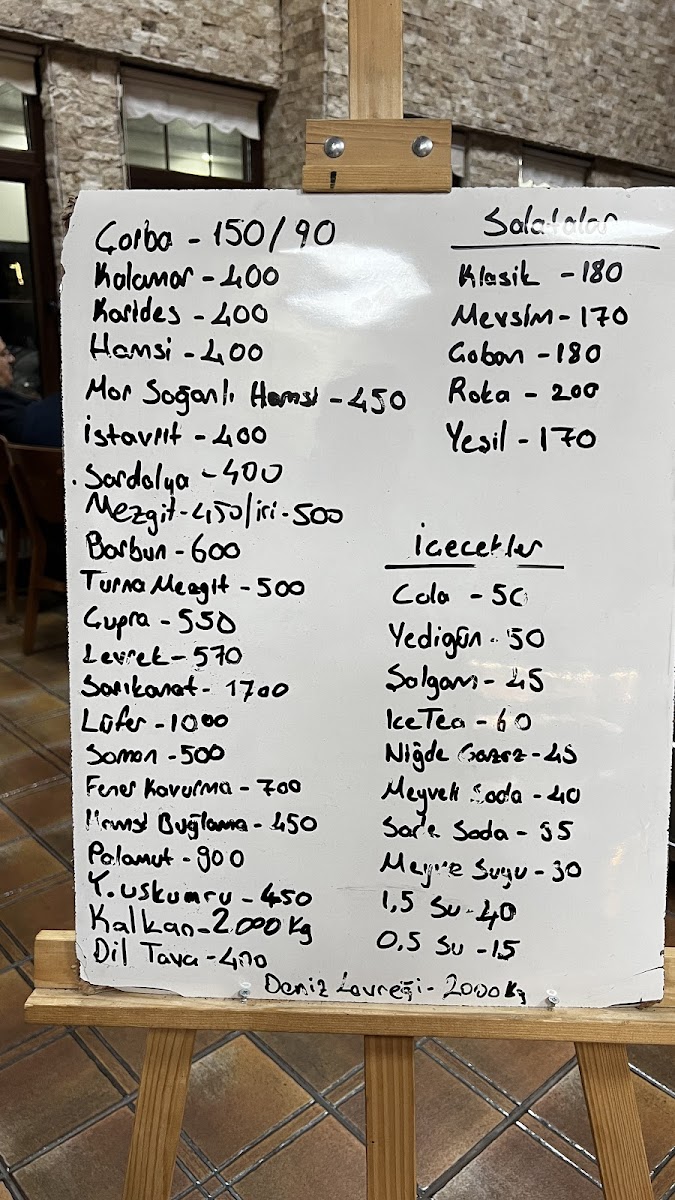 Çorba - 150/90
Kalamar - 400
Karides - 400
Hamsi - 400
Mor Soğanlı Hamsi - 450
İstavrit - 400
Sardalya - 400
Mezgit - 450/iri - 500
Barbun - 600
Turna Mezgit - 500
Çupra - 550
Levrek - 570
Sarıkanat - 1700
Lüfer - 1000
Somon - 500
Fener Kavurma - 700
Hamsi Buğlama - 450
Palamut - 900
Y. uskumru - 450
Kalkan - 2.000 Kg
Dil Tava - 400
Deniz Levreği - 2000 Kg
Salatalar
Klasik - 180
Mevsim - 170
Çoban - 180
Roka - 200
Yeşil - 170
İçecekler
Cola - 50
Yedigün - 50
Şalgam - 45
Ice Tea - 60
Niğde Gazoz - 45
Meyveli Soda - 40
Sade Soda - 35
Meyve Suyu - 30
1,5 Su - 40
0,5 Su - 15